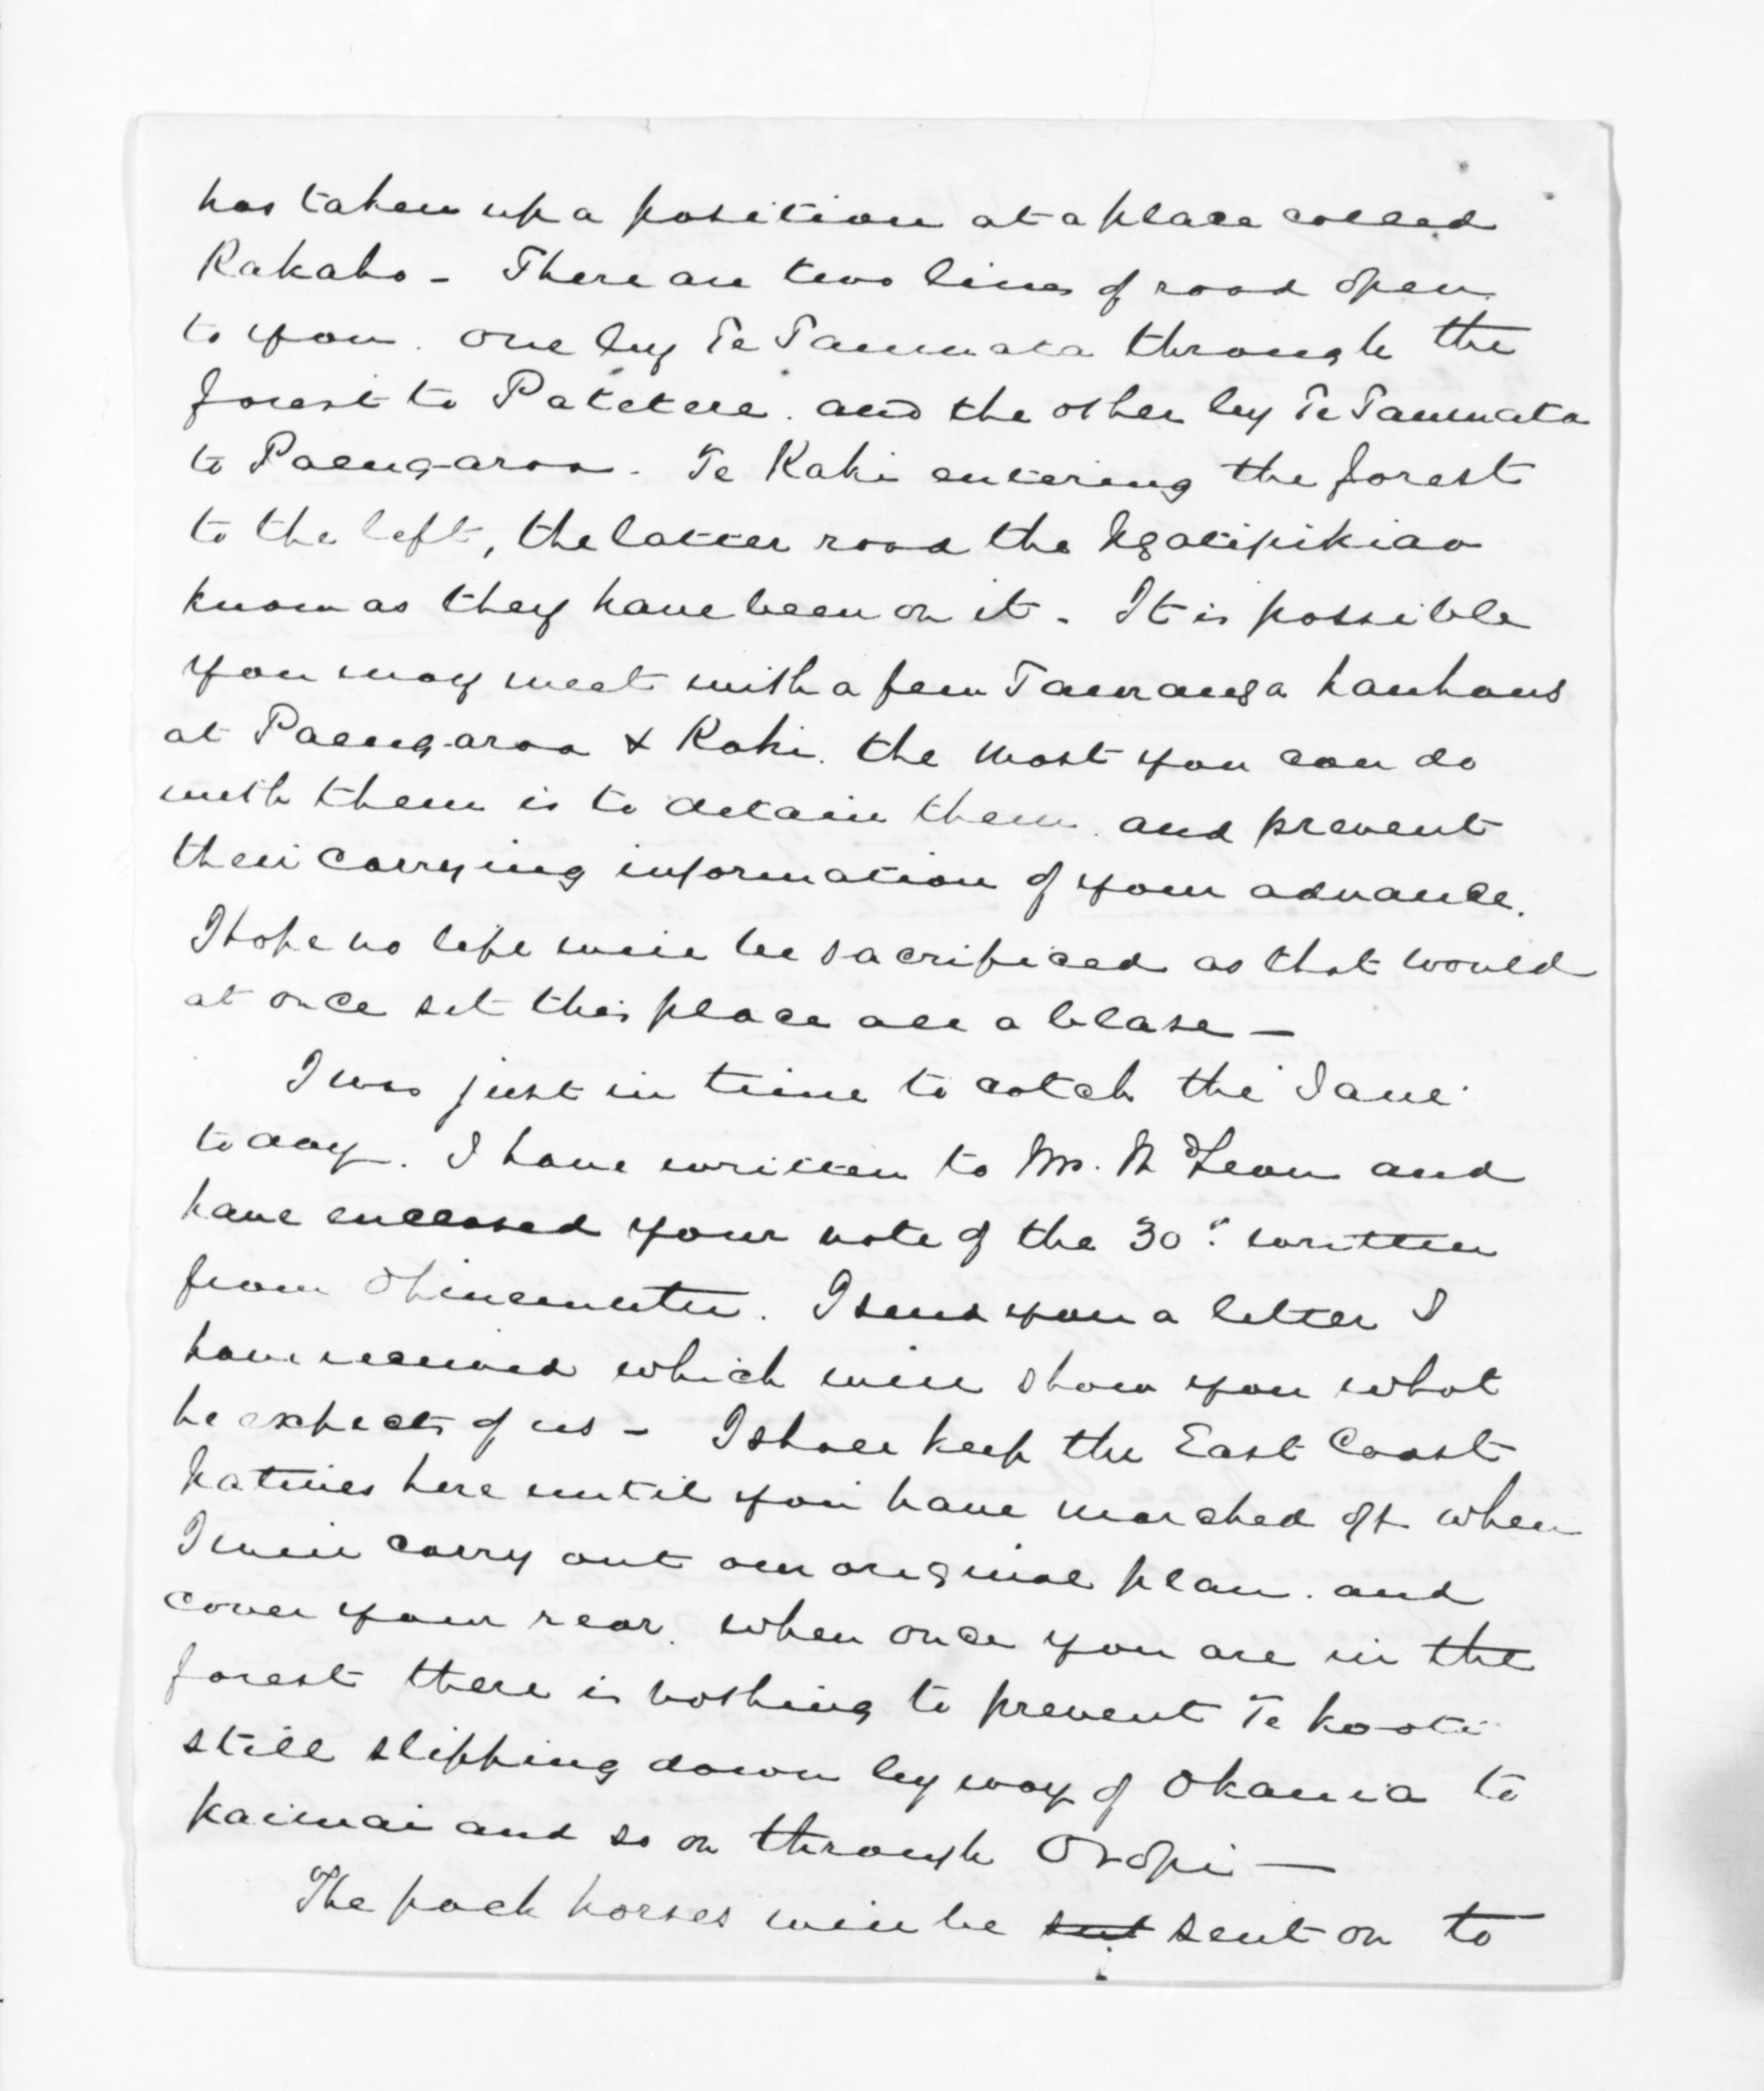 has taken up a position at a place called
Kakaho - There are two lines of road open
to you. one by Te Taumata through the
forest to Patetere. and the other by Te Taumata
to Paengaroa. Te Kaki entering the forest
to the left, the latter road the Ngatipikiao
know as they have been on it - It is possible
you may meet with a few Tauranga hauhaus
at Paengaroa & Kaki. the most you can do
with them is to detain them. and prevent
their carrying information of your advance.
I hope no life will be sacrificed as that would
at once set this place all a blase -
I was just in time to catch the 'Jane'
today. I have written to Mr. McLean and
have enclosed your note of the 30th written
from Ohinemutu. I send you a letter I
have received which will show you what
he expects of us - I shall keep the East Coast
Natives here until you have marched off when
I will carry out our original plan. and
cover your rear. when once you are in the
forest there is nothing to prevent Te Kooti
still slipping down by way of Okauia to
Kaimai and so on through Oropi -
The pack horses will be sent on to